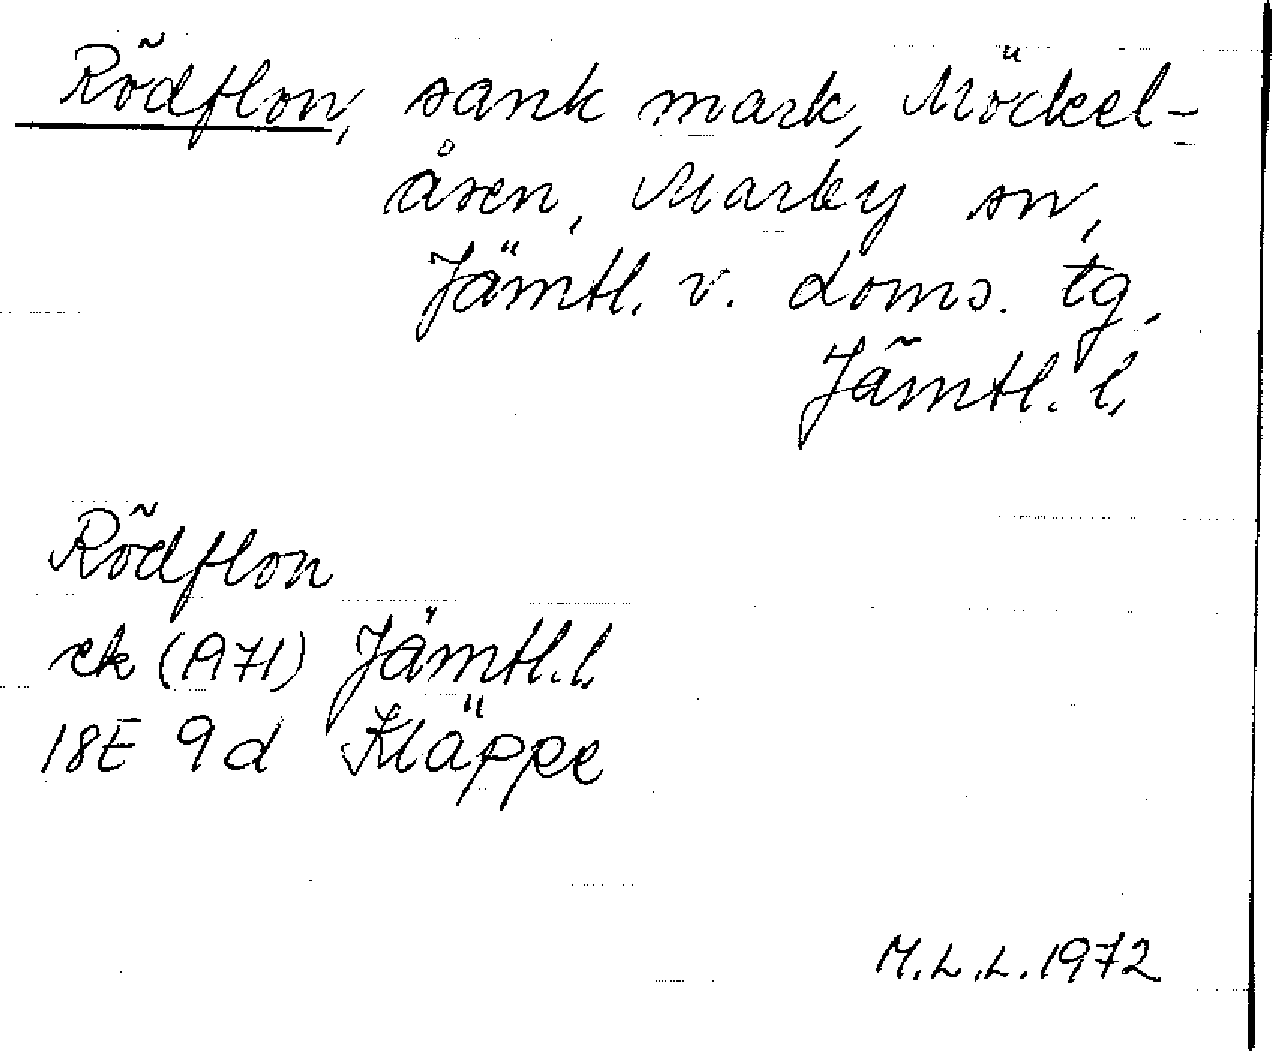 Rödflon, sank mark, Möckel-
åsen, Marby sn,
Jämtl. v. doms. tg,
Jämtl. l.
Rödflon
ek (A71) Jämtl. l.
18E 9d Kläppe
M.L.L. 1972